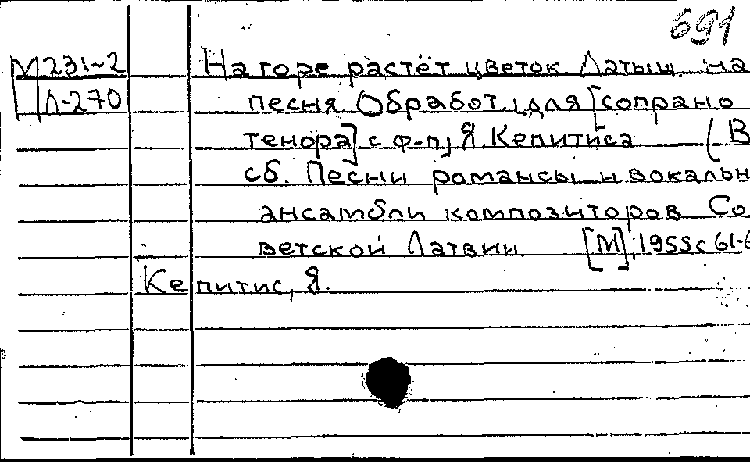 691
М231-2 На горе растёт цветок Латыш. на
Л-270 песня. Обработ. для [сопрано
тенора] с ф-п, Я. Кепитиса (В
сб. Песни романсы и вокальн
ансамбли композиторов Со
ветской Латвии [М], 1955 с 61-6
Кепитис, Я.